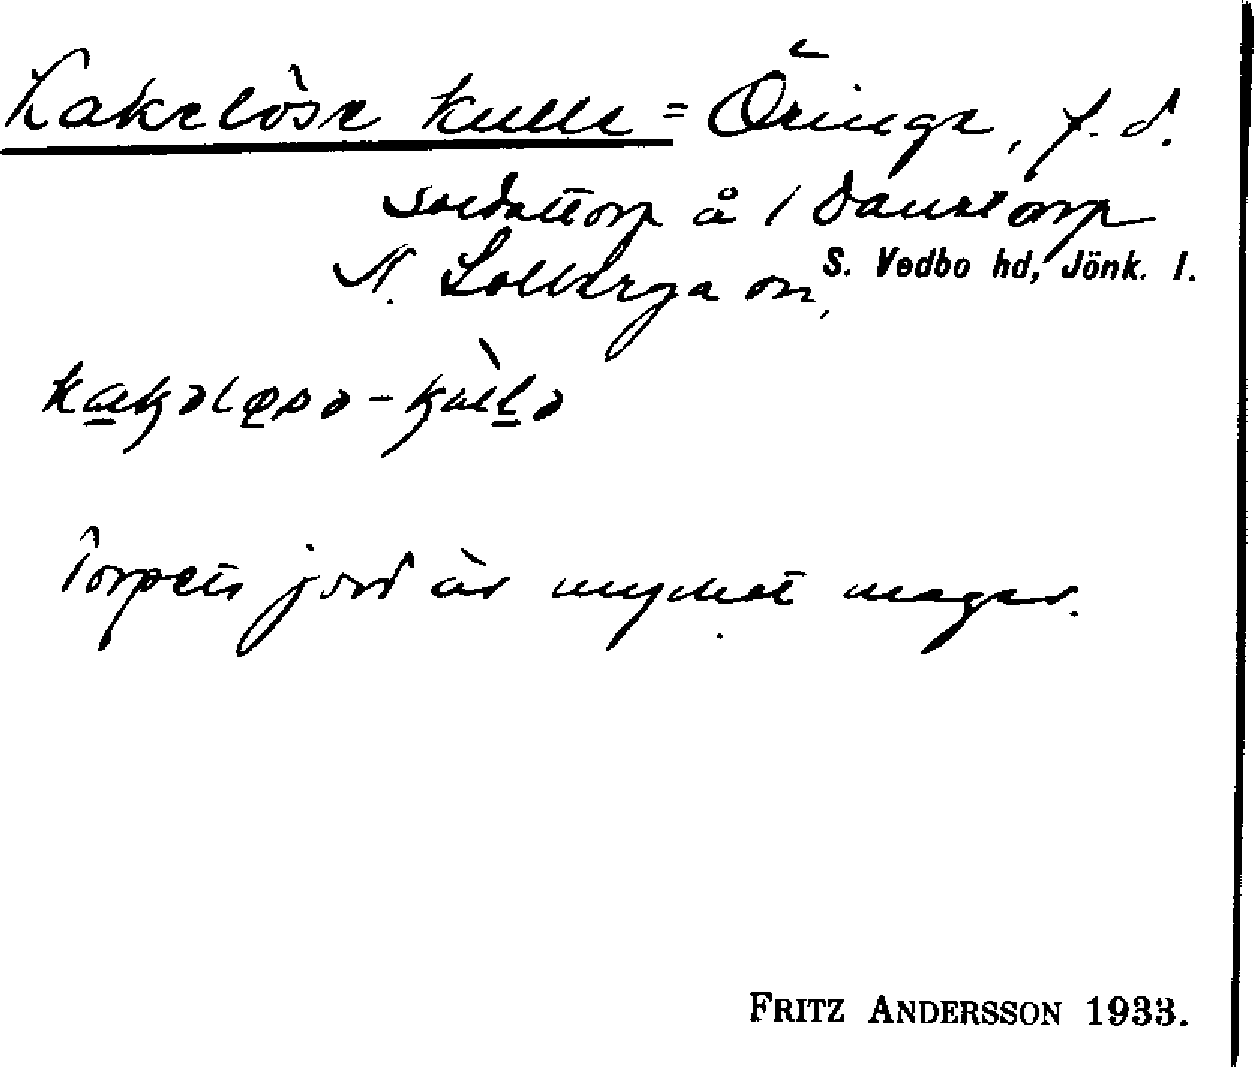 Kakelöse kulle = Öringe, f.d.
soldattorp å / Danstorp
N. Solberga sn, S. Vedbo hd, Jönk. l.
Torpets jord är mycket mager.
FRITZ ANDERSSON 1933.